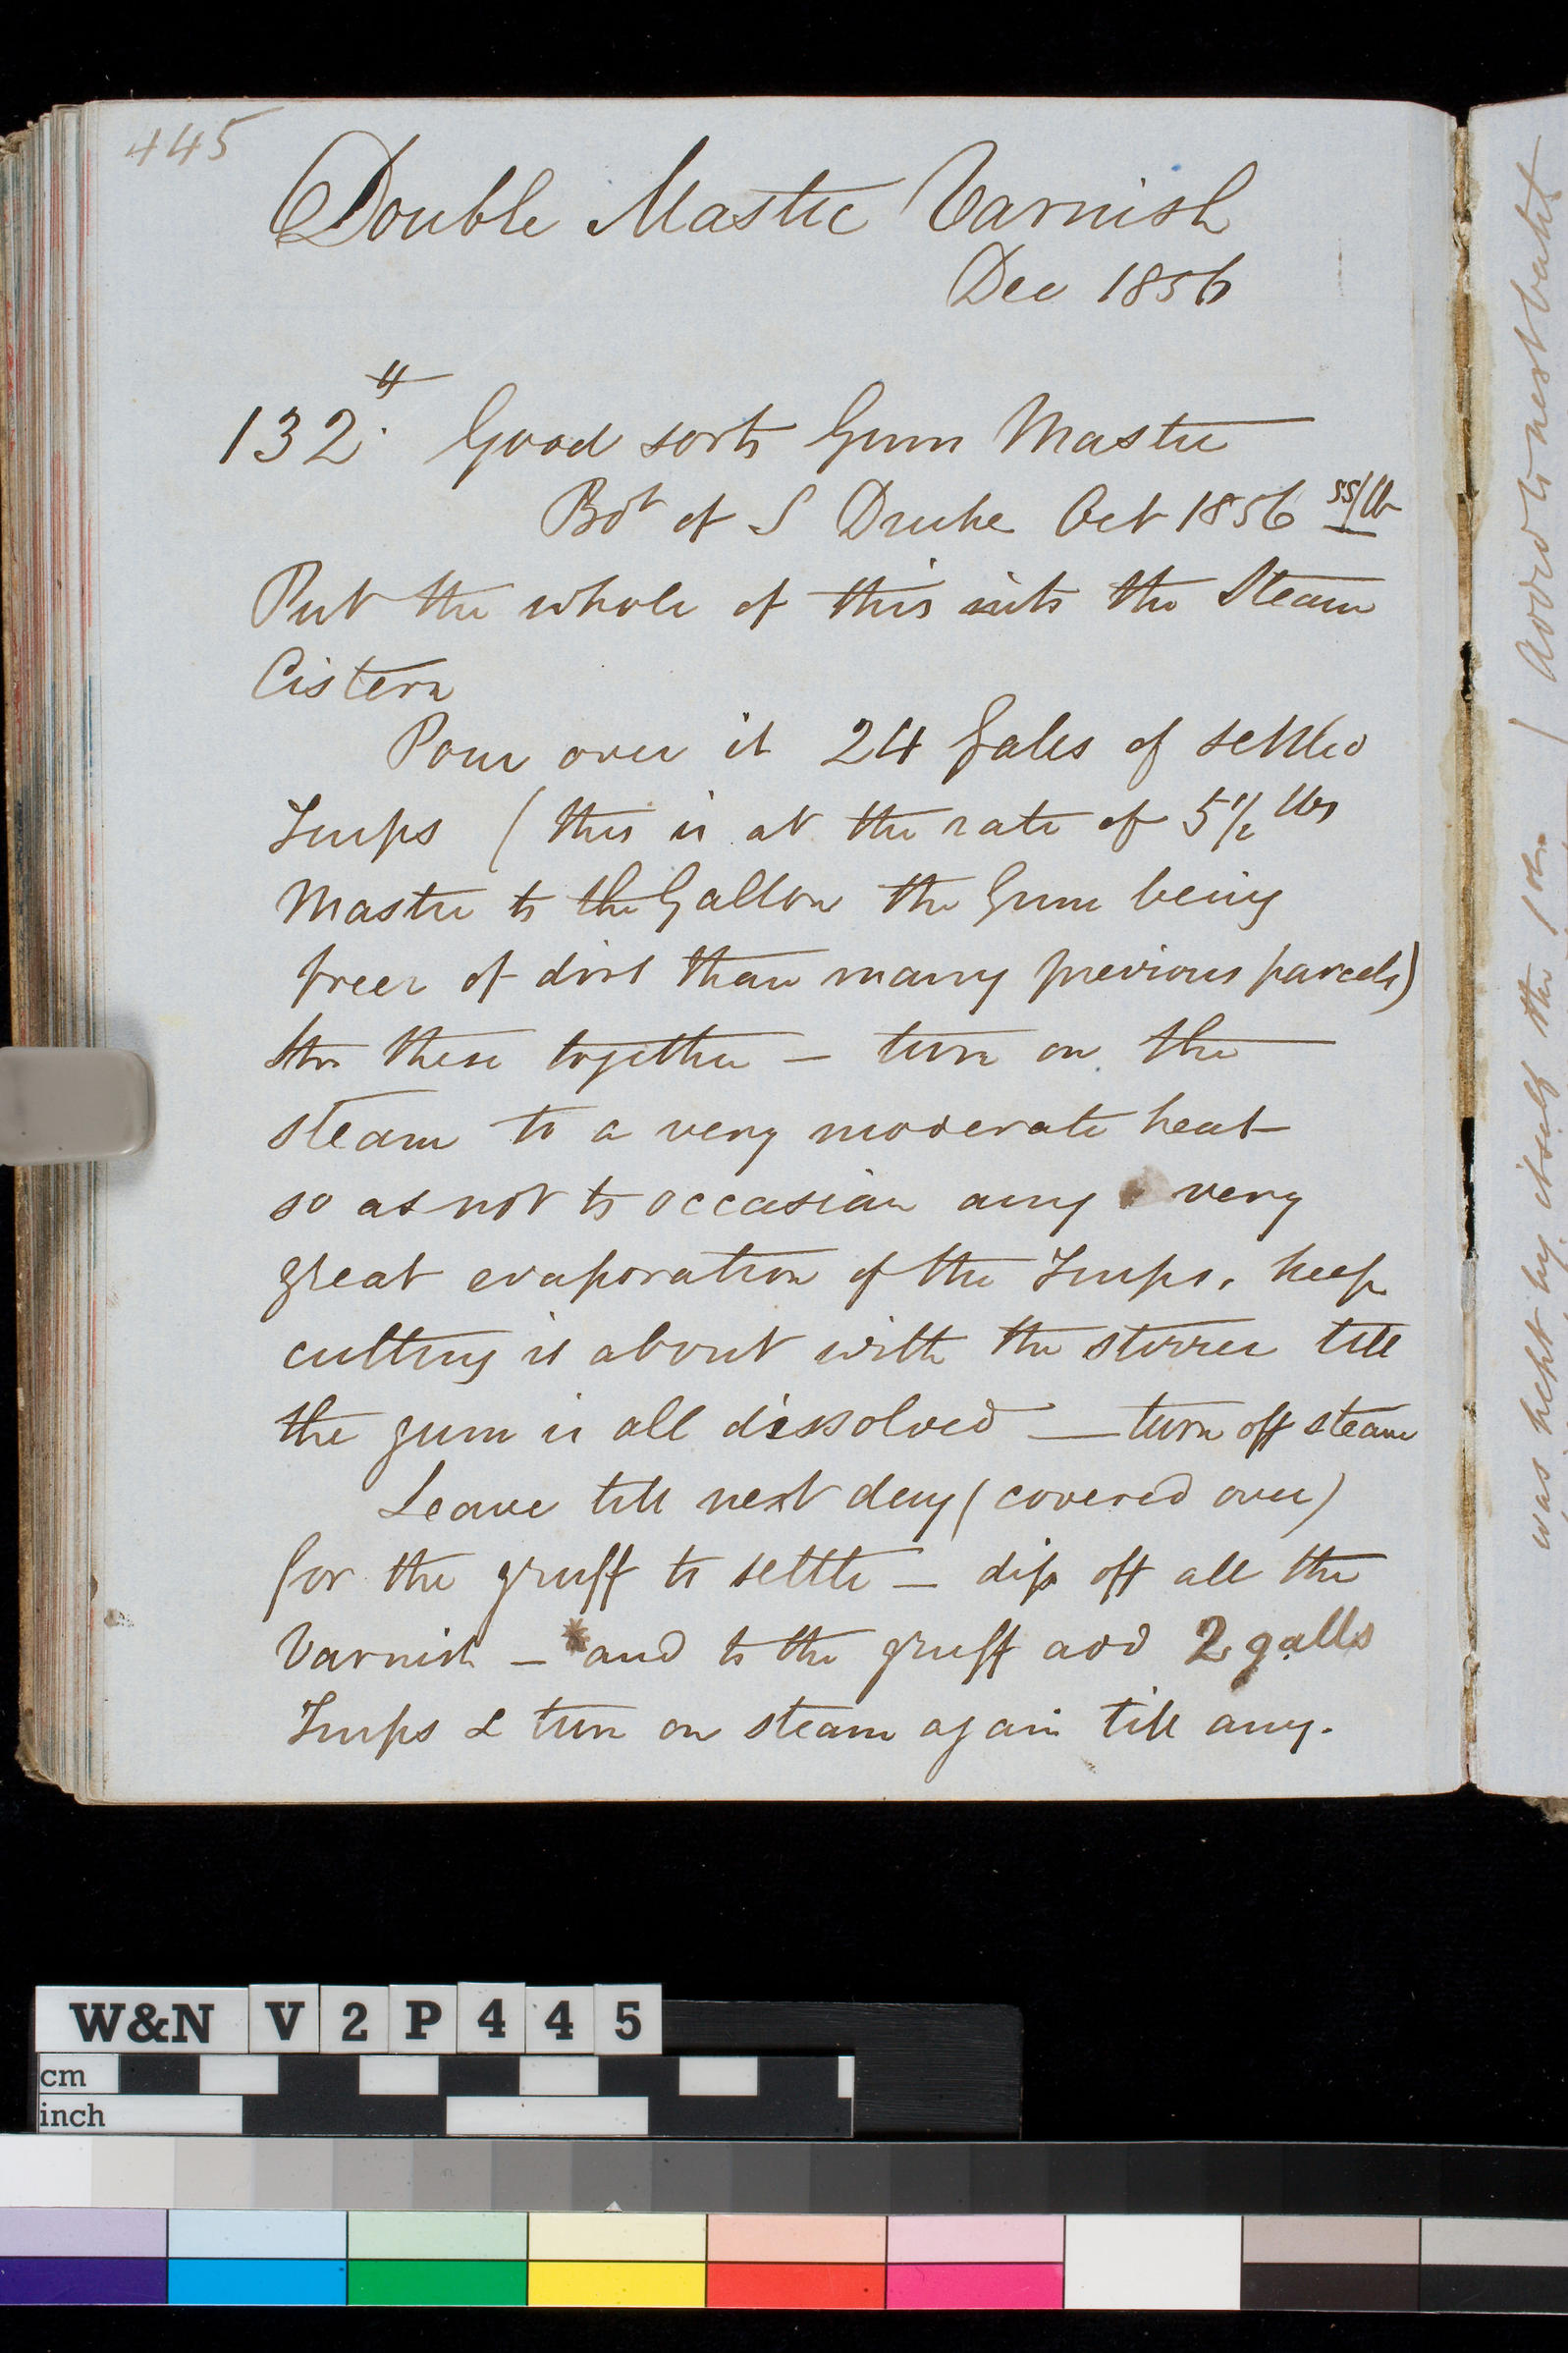 445
Double Mastic Varnish
Dec 1856
132 lb Good sorts Gum Mastic
Bot of S Druke Oct 1856 /lb
Put the whole of this into the Steam
Cistern
Pour over it 24 Galls of settled
Turps (this is at the rate of 5 1/2 lbs
Mastic to the Gallon the Gum being
freer of dirt than many previous parcels)
Stir these together — turn on the
steam to a very moderate heat
so as not to occasion any very
great evaporation of the Turps, keep
cutting it about with the stirrer till
the gum is all dissolved — turn off steam
Leave till next day (covered over)
for the gruff to settle — dip off all the
Varnish — * and to the gruff add 2 galls
Turps & turn on steam again till any.
was kept by itself the / added to next batch
W&N V 2 P 4 4 5
cm
inch